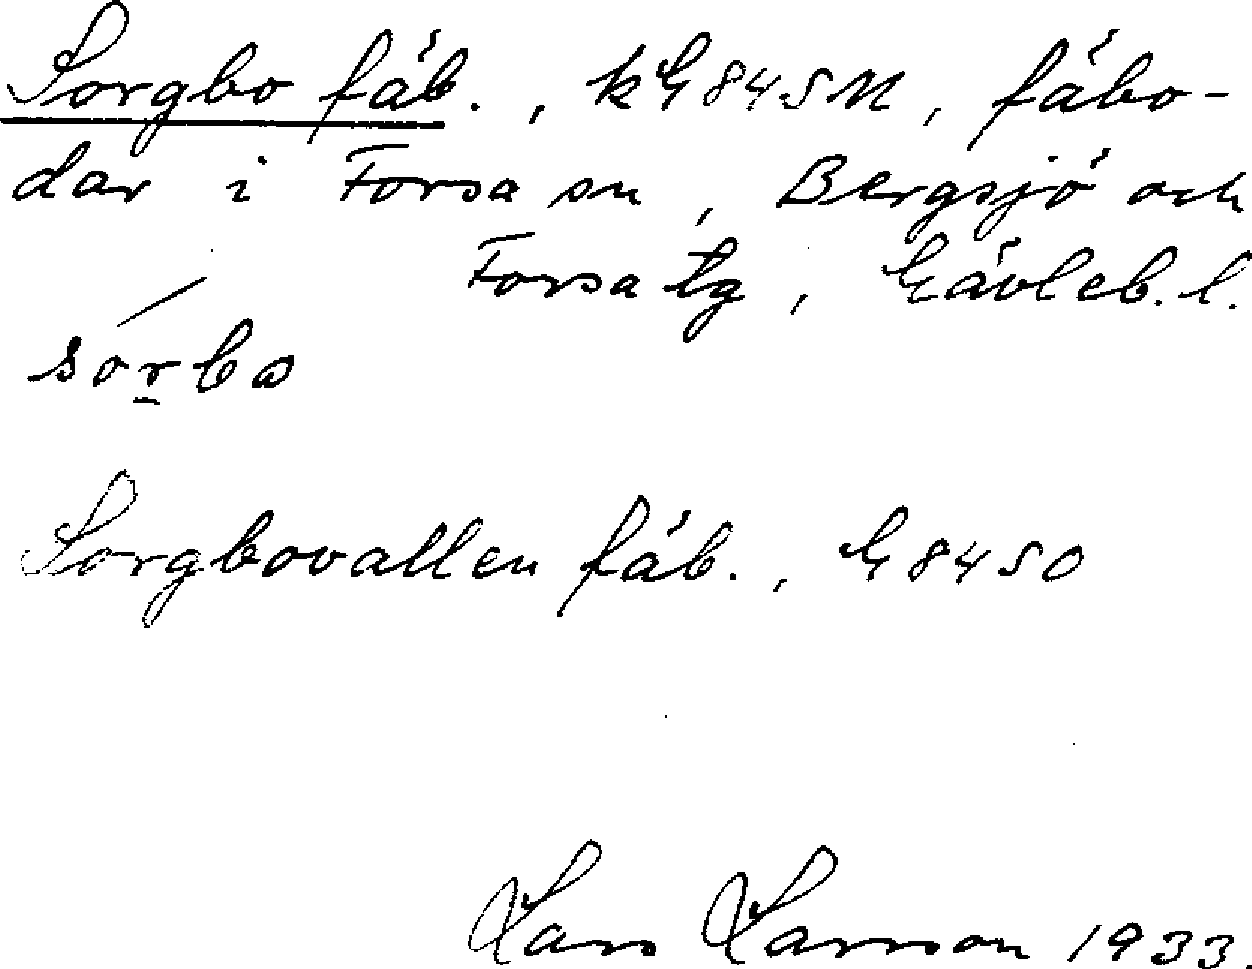 Sorgbo fäb., kG845M, fäbo-
dar i Forsa sn, Bergsjö och
Forsa tg, Gävleb. l.
sórbo
Sorgbovallen fäb., G8450
Lars Larsson 1933.